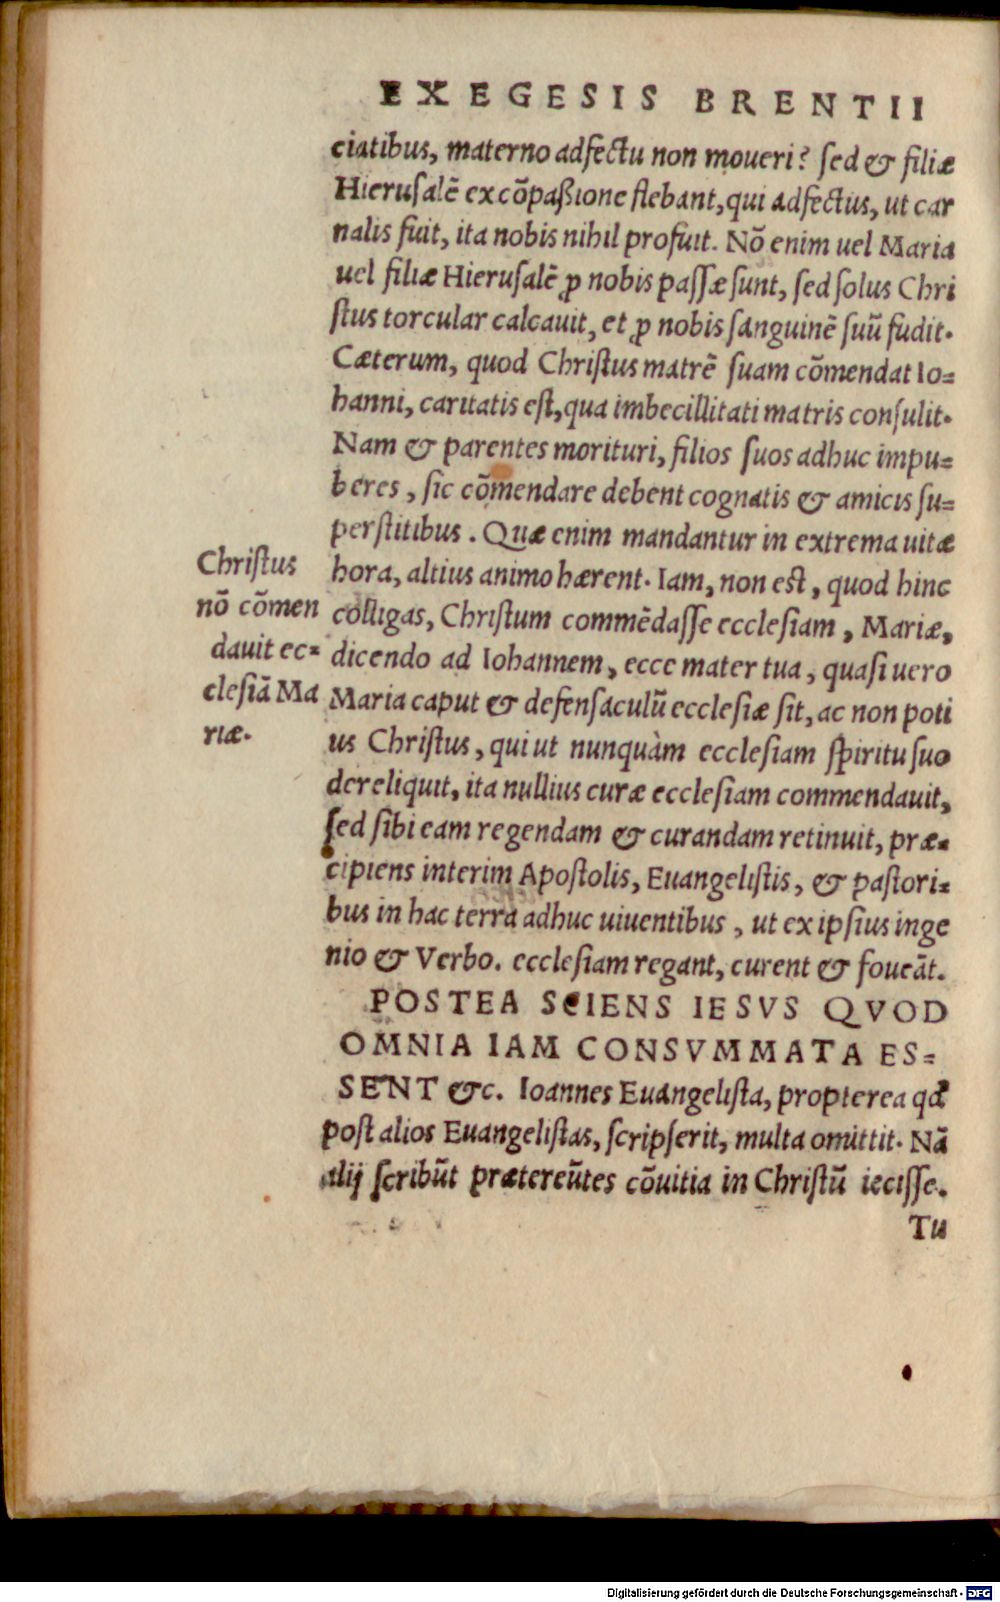 EXEGESIS BRENTII
ciatibus, materno adfectu non moueri? sed & filiæ
Hierusalē ex cōpaßione flebant, qui adfectus, ut car
nalis fuit, ita nobis nihil profuit. Nō enim uel Maria
uel filiæ Hierusalē ꝓ nobis passæ sunt, sed solus Chri
stus torcular calcauit, et ꝓ nobis sanguinē suū fudit.
Cæterum, quod Christus matrē suam cōmendat Io=
hanni, caritatis est, qua imbecillitati matris consulit.
Nam & parentes morituri, filios suos adhuc impu=
beres, sic cōmendare debent cognatis & amicis su=
perstitibus. Quæ enim mandantur in extrema uitæ
hora, altius animo hærent. Iam, non est, quod hinc
colligas, Christum commēdasse ecclesiam, Mariæ,
dicendo ad Iohannem, ecce mater tua, quasi uero
Maria caput & defensaculū ecclesiæ sit, ac non poti
us Christus, qui ut nunquàm ecclesiam spiritu suo
dereliquit, ita nullius curæ ecclesiam commendauit,
sed sibi eam regendam & curandam retinuit, præ=
cipiens interim Apostolis, Euangelistis, & pastori=
bus in hac terra adhuc uiuentibus, ut ex ipsius inge
nio & Verbo. ecclesiam regant, curent & foueāt.
POSTEA SCIENS IESVS QVOD
OMNIA IAM CONSVMMATA ES=
SENT &c. Ioannes Euangelista, propterea qđ
post alios Euangelistas, scripserit, multa omittit. Nā
alij scribūt prætereūtes cōuitia in Christū iecisse.
Tu
Christus
nō cōmen
dauit ec=
clesiā Ma
riæ.
Digitalisierung gefördert durch die Deutsche Forschungsgemeinschaft - DFG